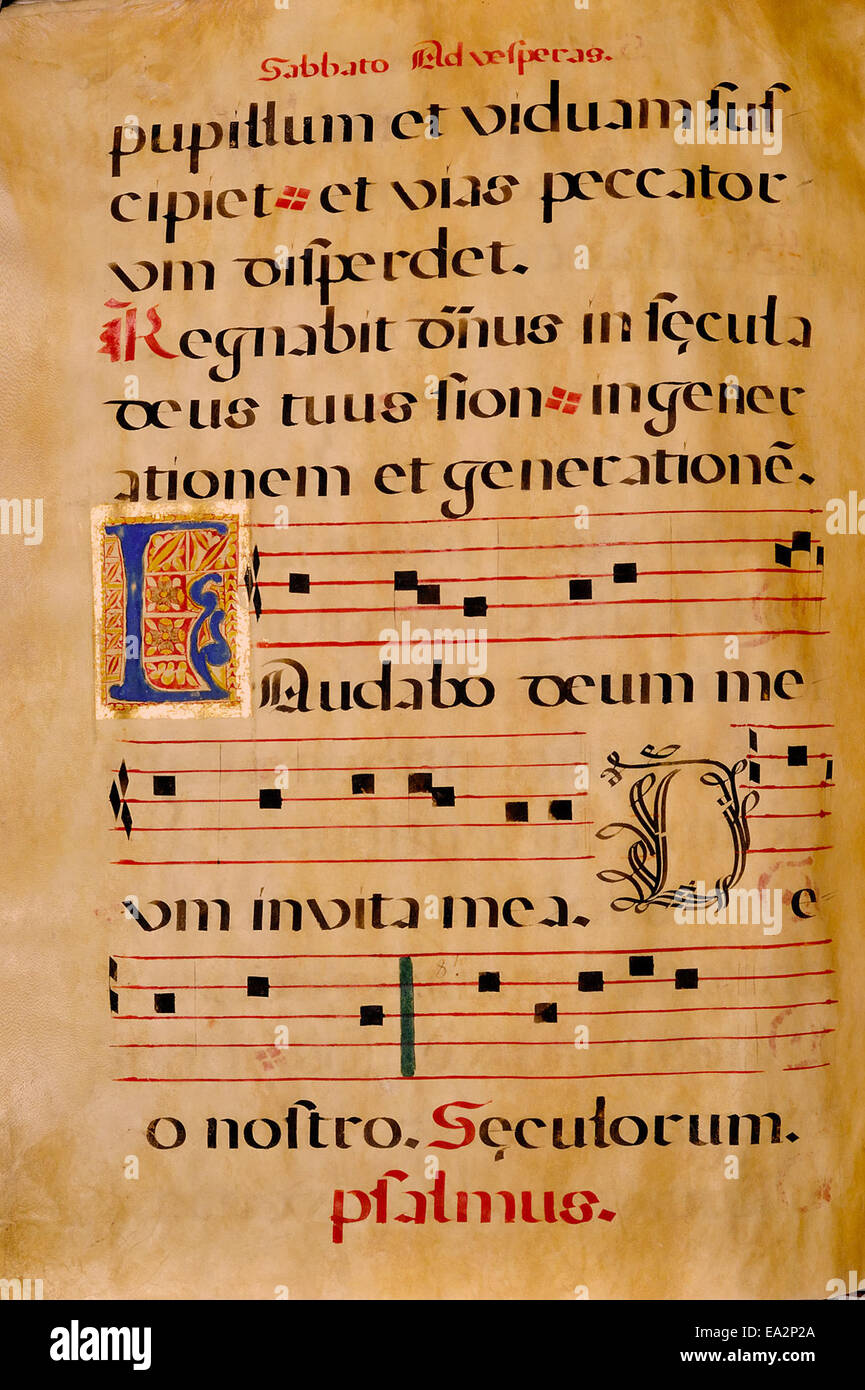 Sabbato Ad veſperas.
pupillum et viduam ſuſ
cipiet et vias peccator
vm diſperdet.
Regnabit dn̄us in ſęcula
deus tuus ſion in gener
ationem et generationē.
LAudabo deum me
vm in vita mea. De
8.
o noſtro. Sęculorum.
pſalmus.
alamy
Image ID: EA2P2A
www.alamy.com